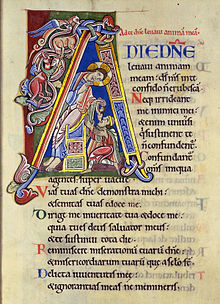 Ad te dñe leuaui animã meã.
D TE DÑE
leuaui animam
meam · dš mš in te
confido n̄ erubescã
Neq; irrideant
me inimici mei ·
&enim uniuersi
qui sustinent te
n̄ confundent
Confundant
om̄s iniqua
agentes · super uacue
Vias tuas dñe demonstra michi ·
& semitas tuas edoce me ·
Dirige me in ueritate tua & doce me ·
quia tu es deus saluator meus
& te sustinui tota die ·
Reminiscere miserationum tuarũ dñe ·
& misericordiarum tuarũ que a sc̄lo s̄
Delicta iuuentutis mee ·
& ignorantias meas ne memineris